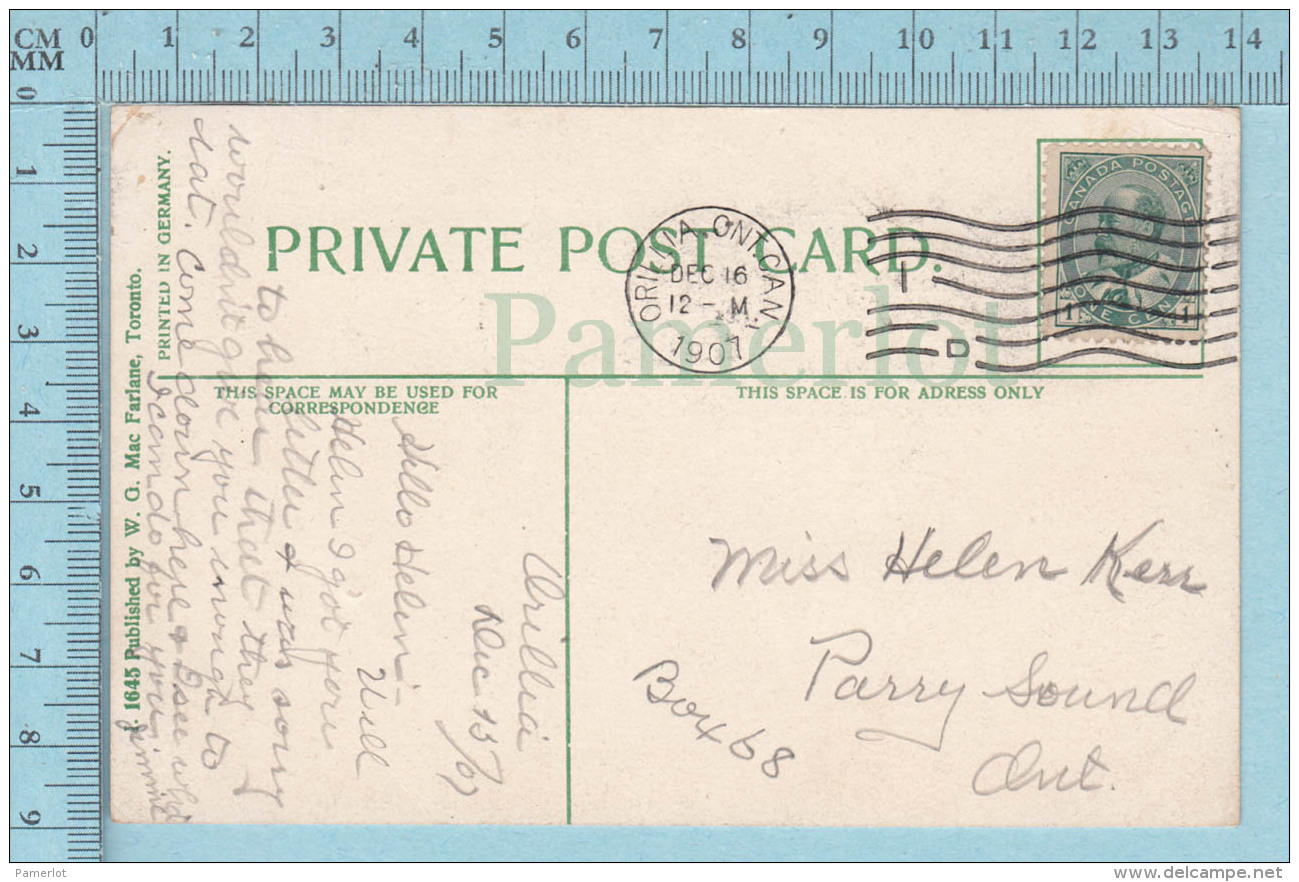 CM 0 1 2 3 4 5 6 7 8 9 10 11 12 13 14
MM
0 1 2 3 4 5 6 7 8 9
PRIVATE POST CARD.
ORILLIA, ONT. CAN.
DEC 16
12 - M
1907
1
D
CANADA POSTAGE
1 ONE CENT 1
THIS SPACE MAY BE USED FOR
CORRESPONDENCE
THIS SPACE IS FOR ADRESS ONLY
PRINTED IN GERMANY.
1645 Published by W. G. Mac Farlane, Toronto.
Orillia
Dec 15/07
Hello Helen -
Well
Helen I got your
letter & was sorry
to hear that they
wouldnit give you enough to
eat. Come down here & I see what
I can do for you.
Jimmie
Miss Helen Kerr
Parry Sound
Ont.
Box 68
Pamerlot
Pamerlot